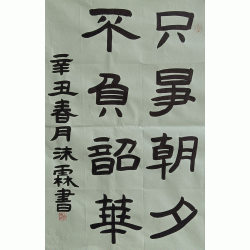 只爭朝夕
不負韶華
辛丑春月沐霖書